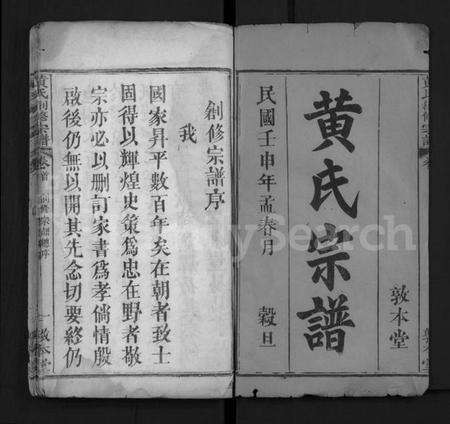 敦本堂
黄氏宗譜
民國壬申年孟春月 穀旦
創修宗譜序
我
國家昇平數百年矣在朝者致士
固得以輝煌史策為忠在野者敬
宗亦必以刪訂家書為孝倘情殷
啟後仍無以開其先念切要終仍
黃氏創修宗譜 卷首 創修宗譜序 一 敦本堂
FamilySearch